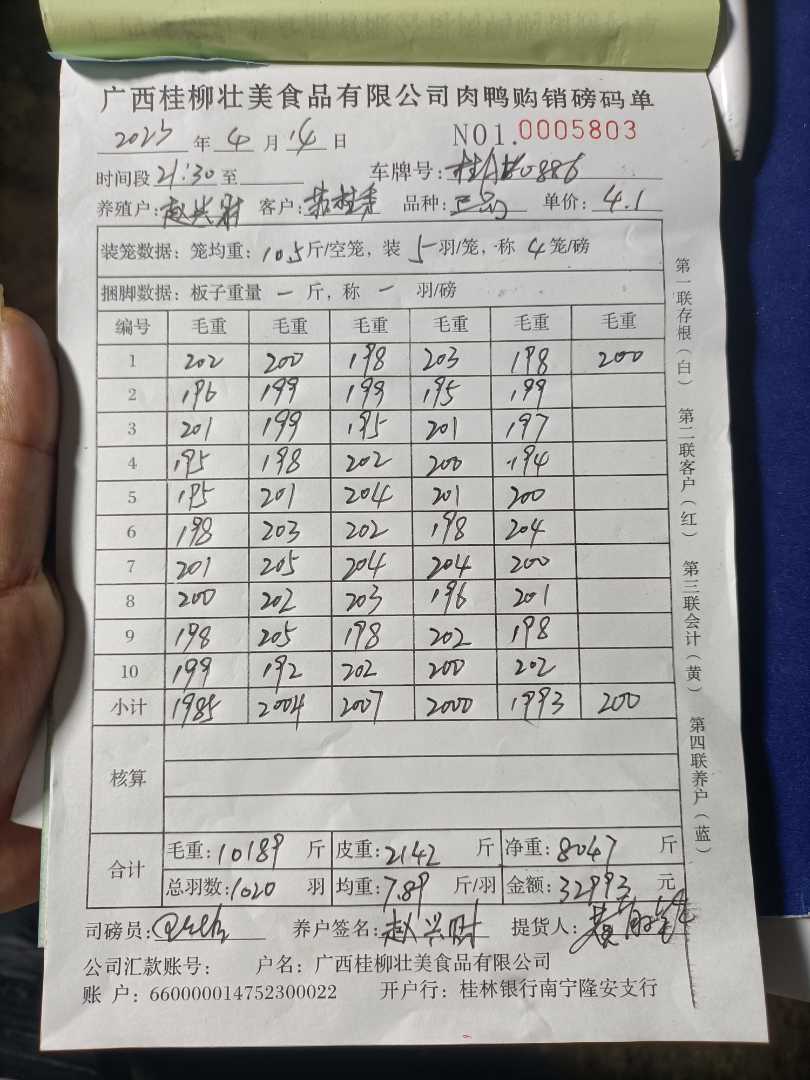 广西桂柳壮美食品有限公司肉鸭购销磅码单
2025年4月14日 NO1.0005803
时间段21:30至 车牌号:桂A 0886
养殖户:赵兴财 客户: 品种: 单价:4.1
装笼数据:笼均重:10.5斤/空笼,装5羽/笼,称4笼/磅
捆脚数据:板子重量一斤,称一羽/磅
编号 毛重 毛重 毛重 毛重 毛重 毛重
1 202 200 198 203 198 200
2 196 199 199 195 199
3 201 199 195 201 197
4 195 198 202 200 194
5 195 201 204 201 200
6 198 203 202 198 204
7 201 205 204 204 200
8 200 202 203 196 201
9 198 205 198 202 198
10 199 192 202 200 202
小计 1985 2004 2007 2000 1993 200
核算
合计 毛重:10189斤 皮重:2142斤 净重:8047斤
总羽数:1020羽 均重:7.89斤/羽 金额:32993元
司磅员: 养户签名:赵兴财 提货人:
公司汇款账号: 户名:广西桂柳壮美食品有限公司
账 户:660000014752300022 开户行:桂林银行南宁隆安支行
第一联存根(白) 第二联客户(红) 第三联会计(黄) 第四联养户(蓝)